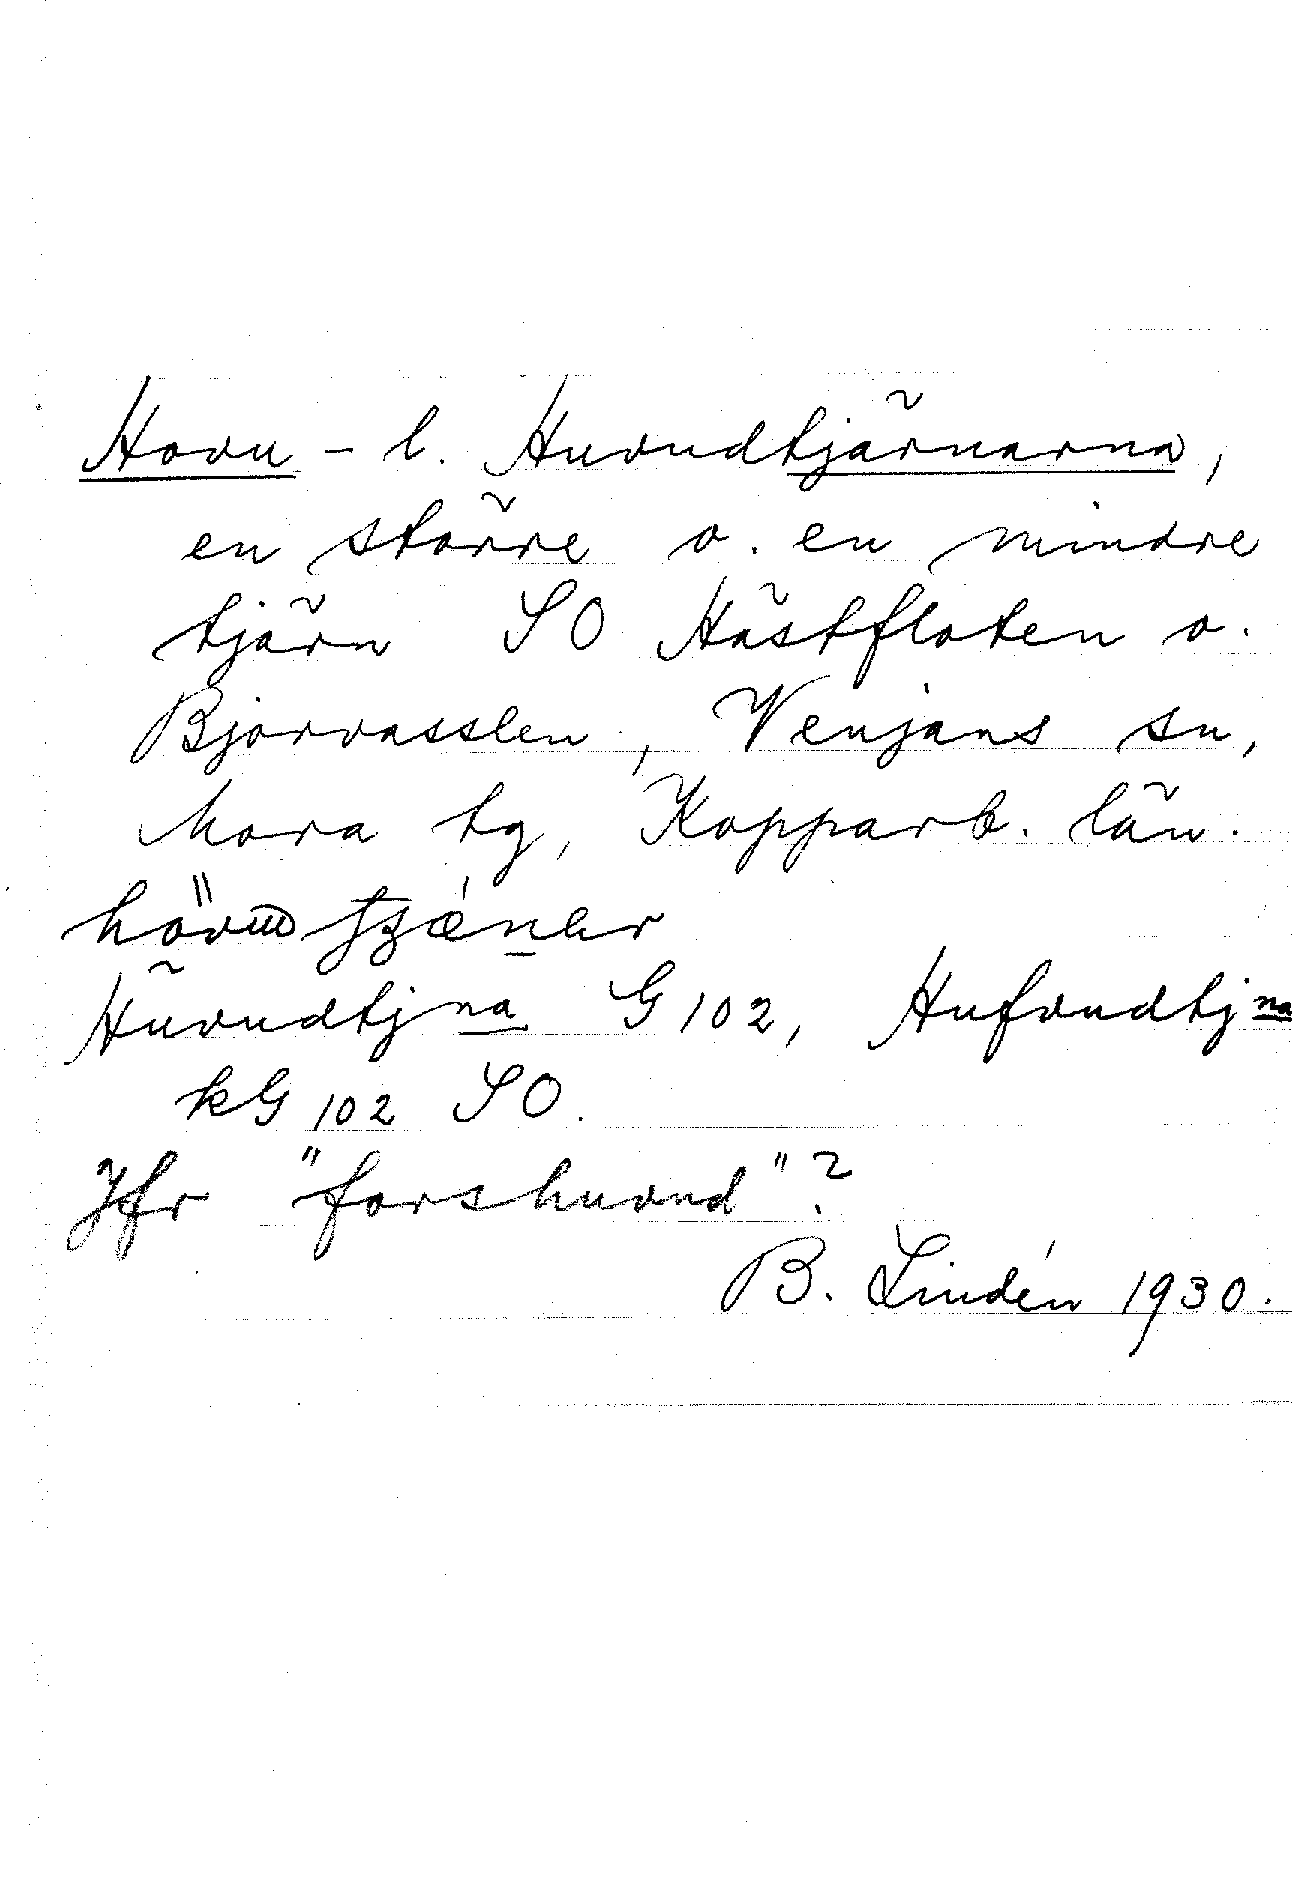 Hovu - l. Huvudtjärnarna,
en större o. en mindre
tjärn SO Hästfloten o.
Bjorvasslen, Venjans sn,
Mora tg, Kopparb. län.
Huvudtjna G 102, Hufvudtjna
kG 102 SO.
Jfr "forshuvud"?
B. Lindén 1930.